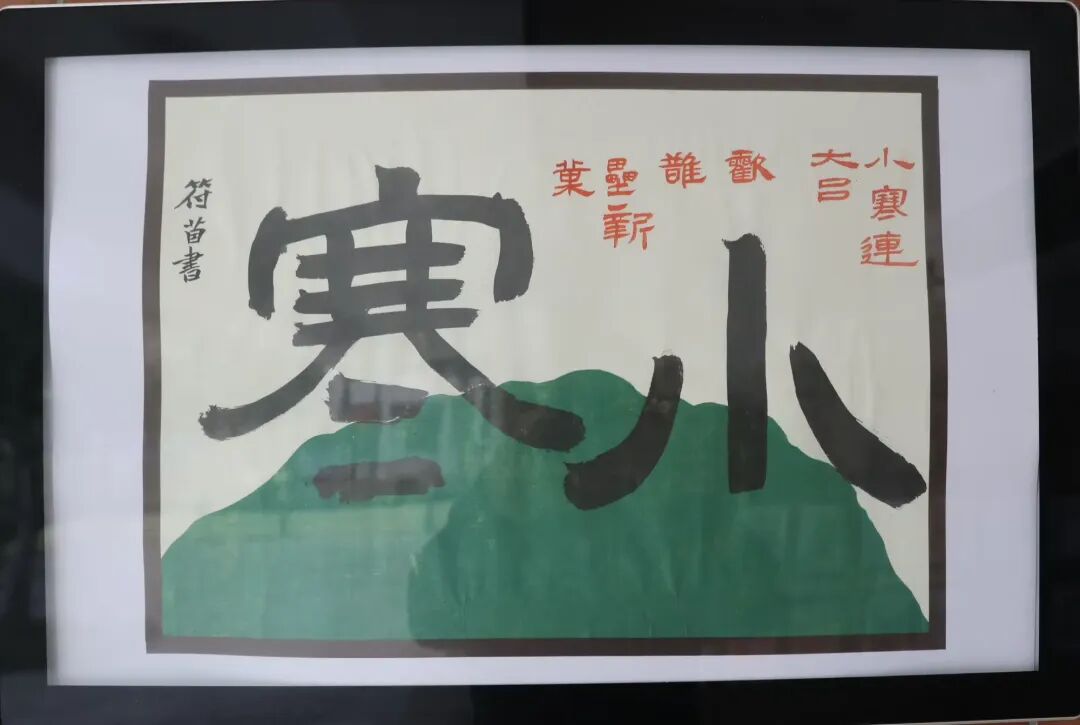 小寒
小寒連
大吕
歡
䧿
壘新
巢
符苗書